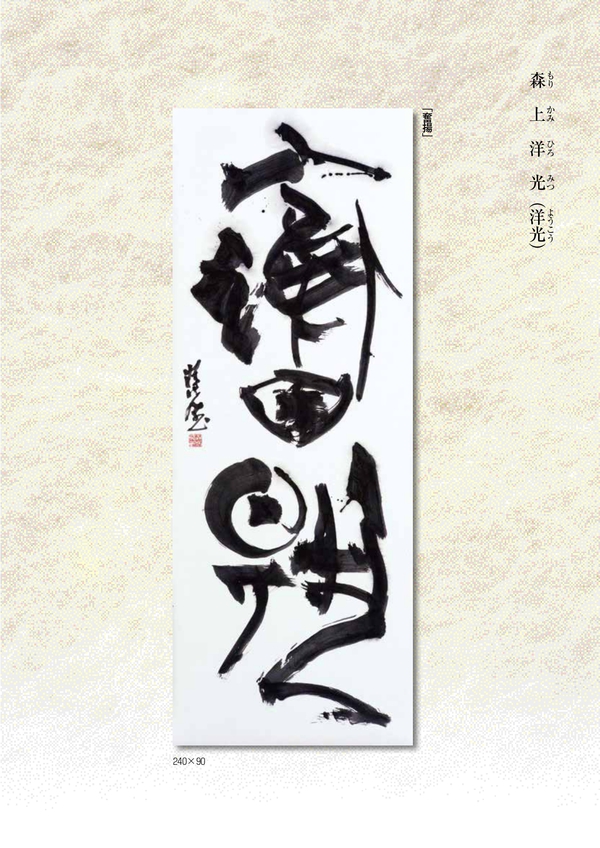 森上洋光（洋光）
もり かみ ひろ みつ ようこう
「奮揚」
奮揚
洋光
240×90